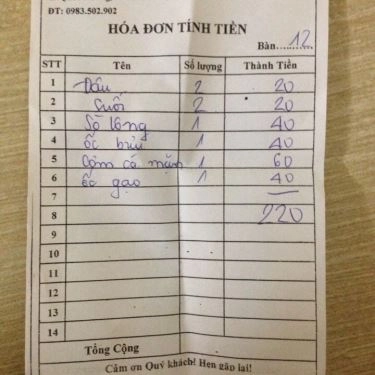 ĐT: 0983.502.902
HÓA ĐƠN TÍNH TIỀN
Bàn.....12
STT Tên Số lượng Thành Tiền
1 Dấu 2 20
2 Suối 2 20
3 Sò lông 1 40
4 ốc bưu 1 40
5 Cơm cá mặn 1 60
6 ốc gạo 1 40
7
8 220
9
10
11
12
13
14
Tổng Cộng
Cảm ơn Quý khách! Hẹn gặp lại!